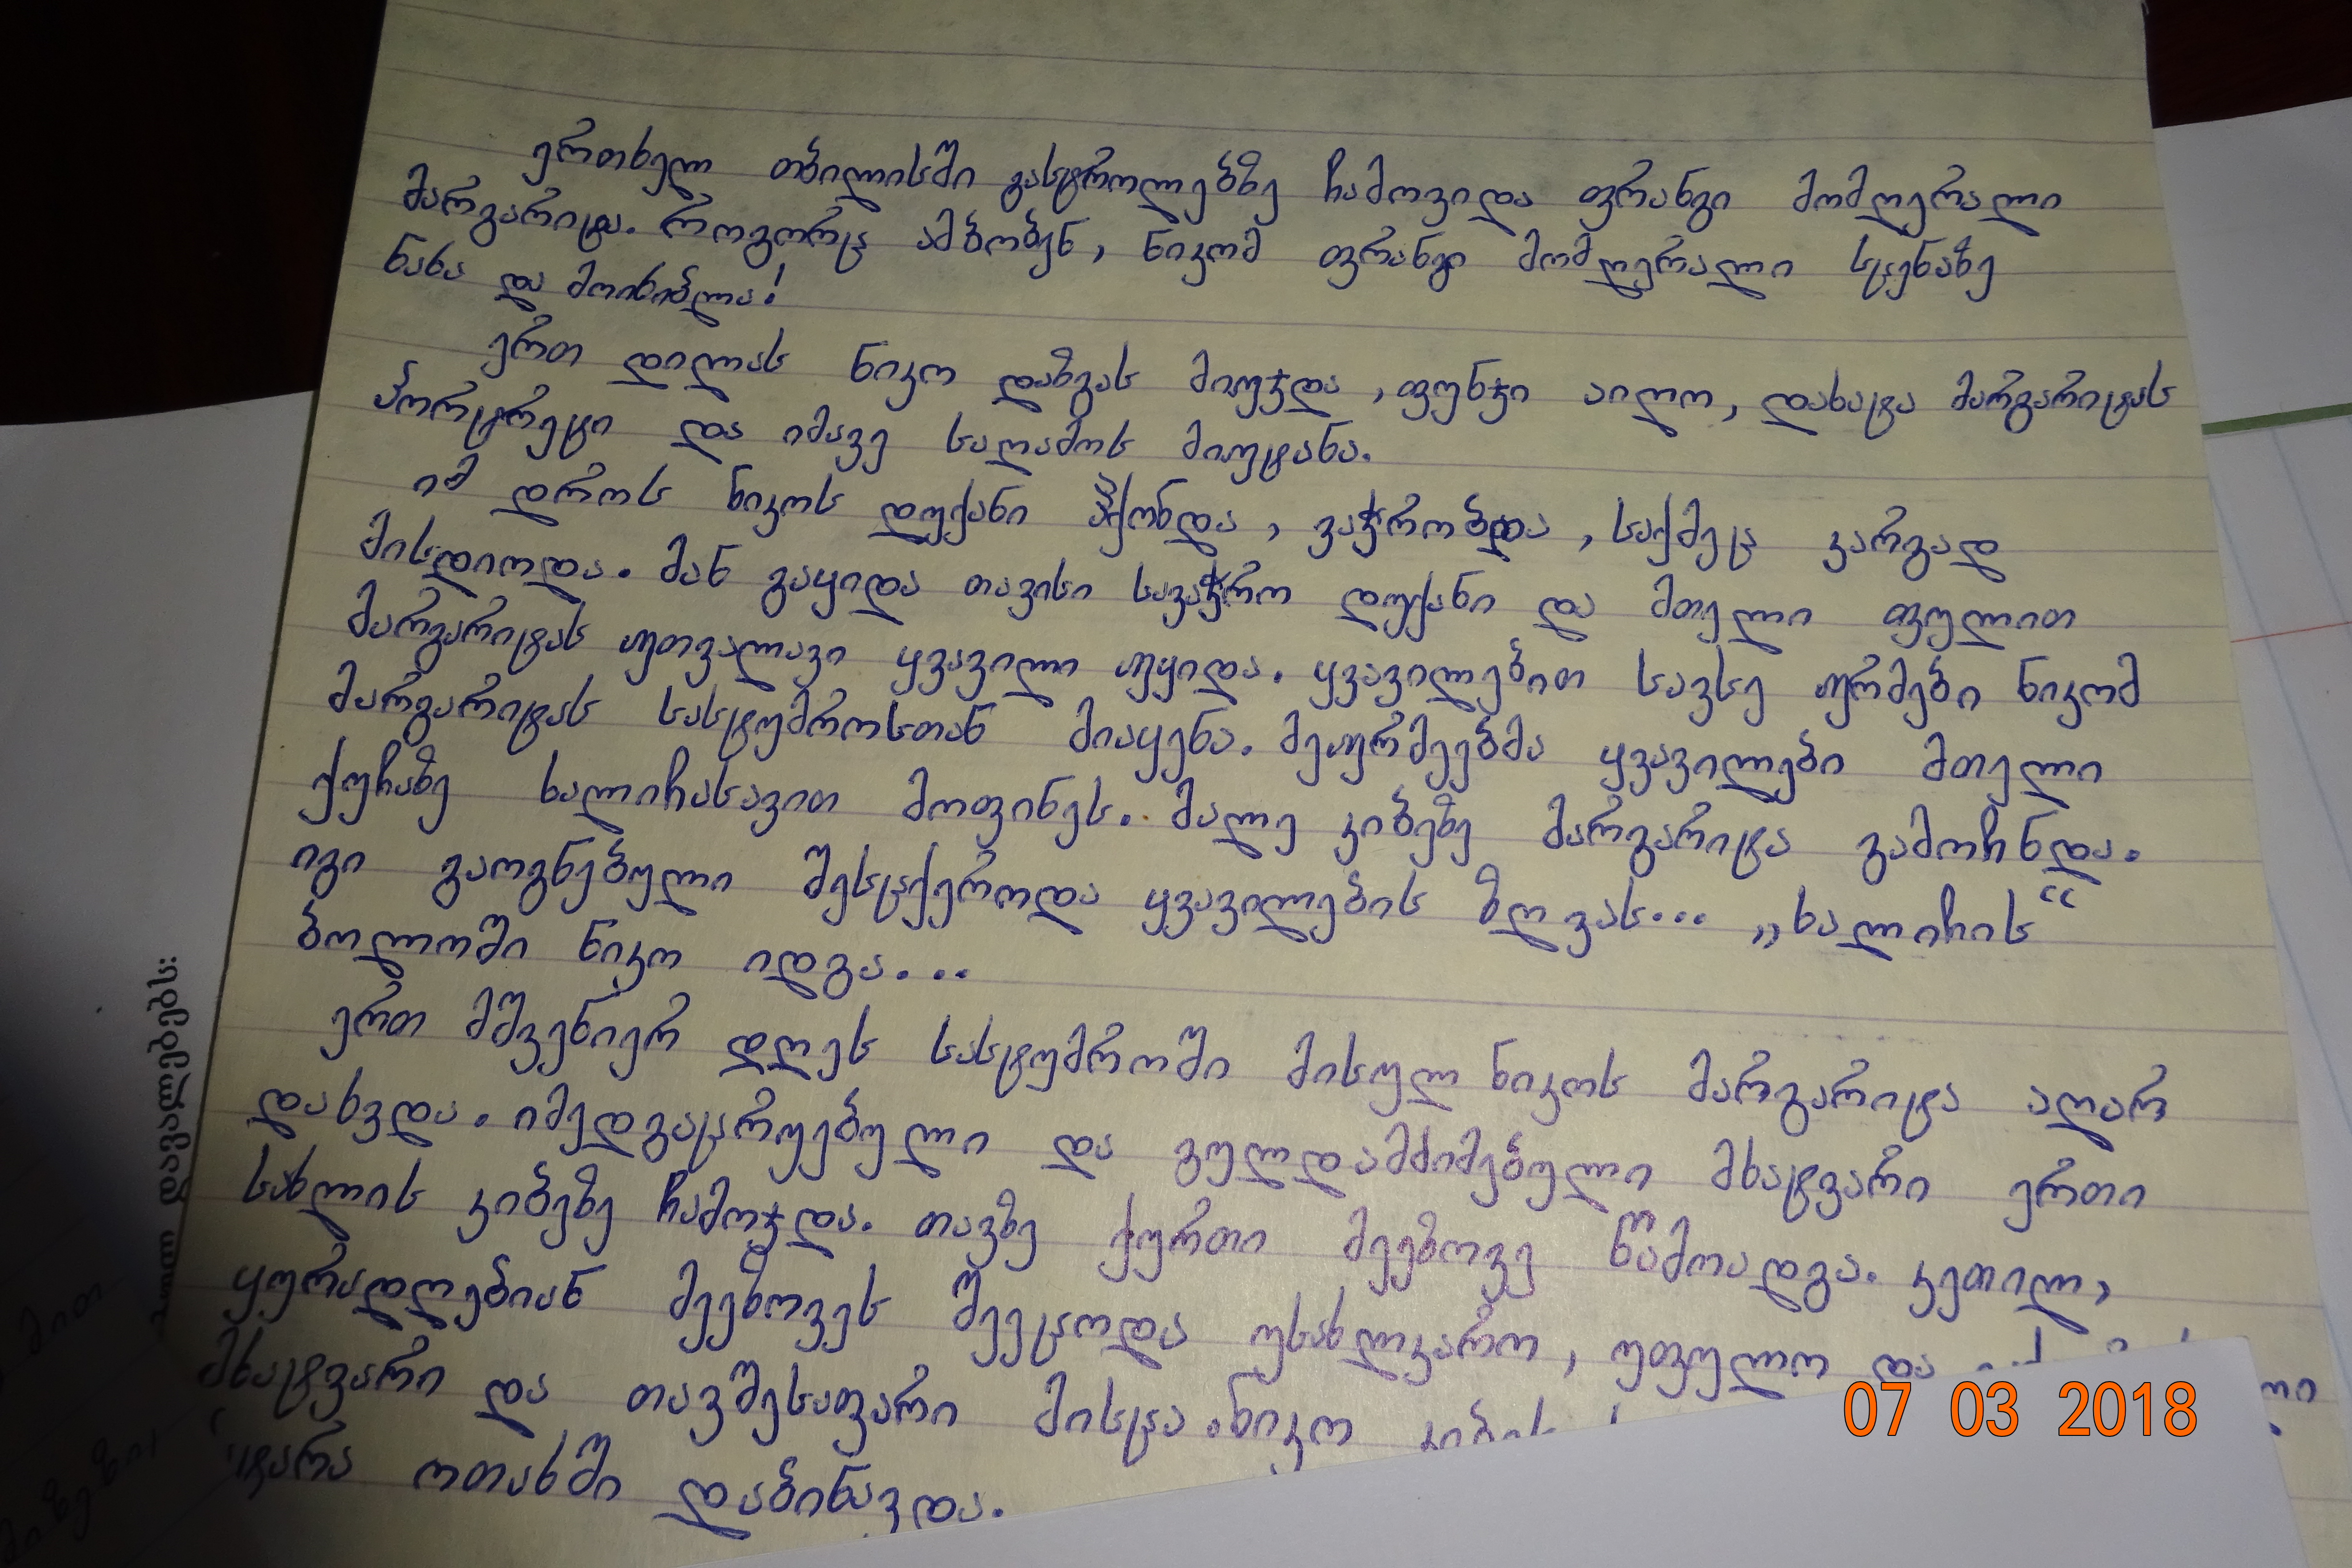 ერთხელ თბილისში გასტროლებზე ჩამოვიდა ფრანგი მომღერალი
მარგარიტა. როგორც ამბობენ, ნიკომ ფრანგი მომღერალი სცენაზე
ნახა და მოიხიბლა!
ერთ დილას ნიკო დაზგას მიუჯდა, ფუნჯი აიღო, დახატა მარგარიტას
პორტრეტი და იმავე საღამოს მიუტანა.
იმ დროს ნიკოს დუქანი ჰქონდა, ვაჭრობდა, საქმეც კარგად
მისდიოდა. მან გაყიდა თავისი სავაჭრო დუქანი და მთელი ფულით
მარგარიტას უთვალავი ყვავილი უყიდა. ყვავილებით სავსე ურმები ნიკომ
მარგარიტას სასტუმროსთან მიაყენა. მეურმეებმა ყვავილები მთელი
ქუჩაზე ხალიჩასავით მოფინეს. მალე კიბეზე მარგარიტა გამოჩნდა.
იგი გაოგნებული შესცქეროდა ყვავილების ზღვას... „ხალიჩის“
ბოლოში ნიკო იდგა...
ერთ მშვენიერ დღეს სასტუმროში მისულ ნიკოს მარგარიტა აღარ
დახვდა. იმედგაცრუებული და გულდამძიმებული მხატვარი ერთი
სახლის კიბეზე ჩამოჯდა. თავზე ქურთი მეეზოვე წამოადგა. კეთილ,
ყურადღებიან მეეზოვეს შეეცოდა უსახლკარო, უფულო და
მხატვარი და თავშესაფარი მისცა. ნიკო კიბის
ოთახში დაბინავდა.
დავალებებს:
07 03 2018